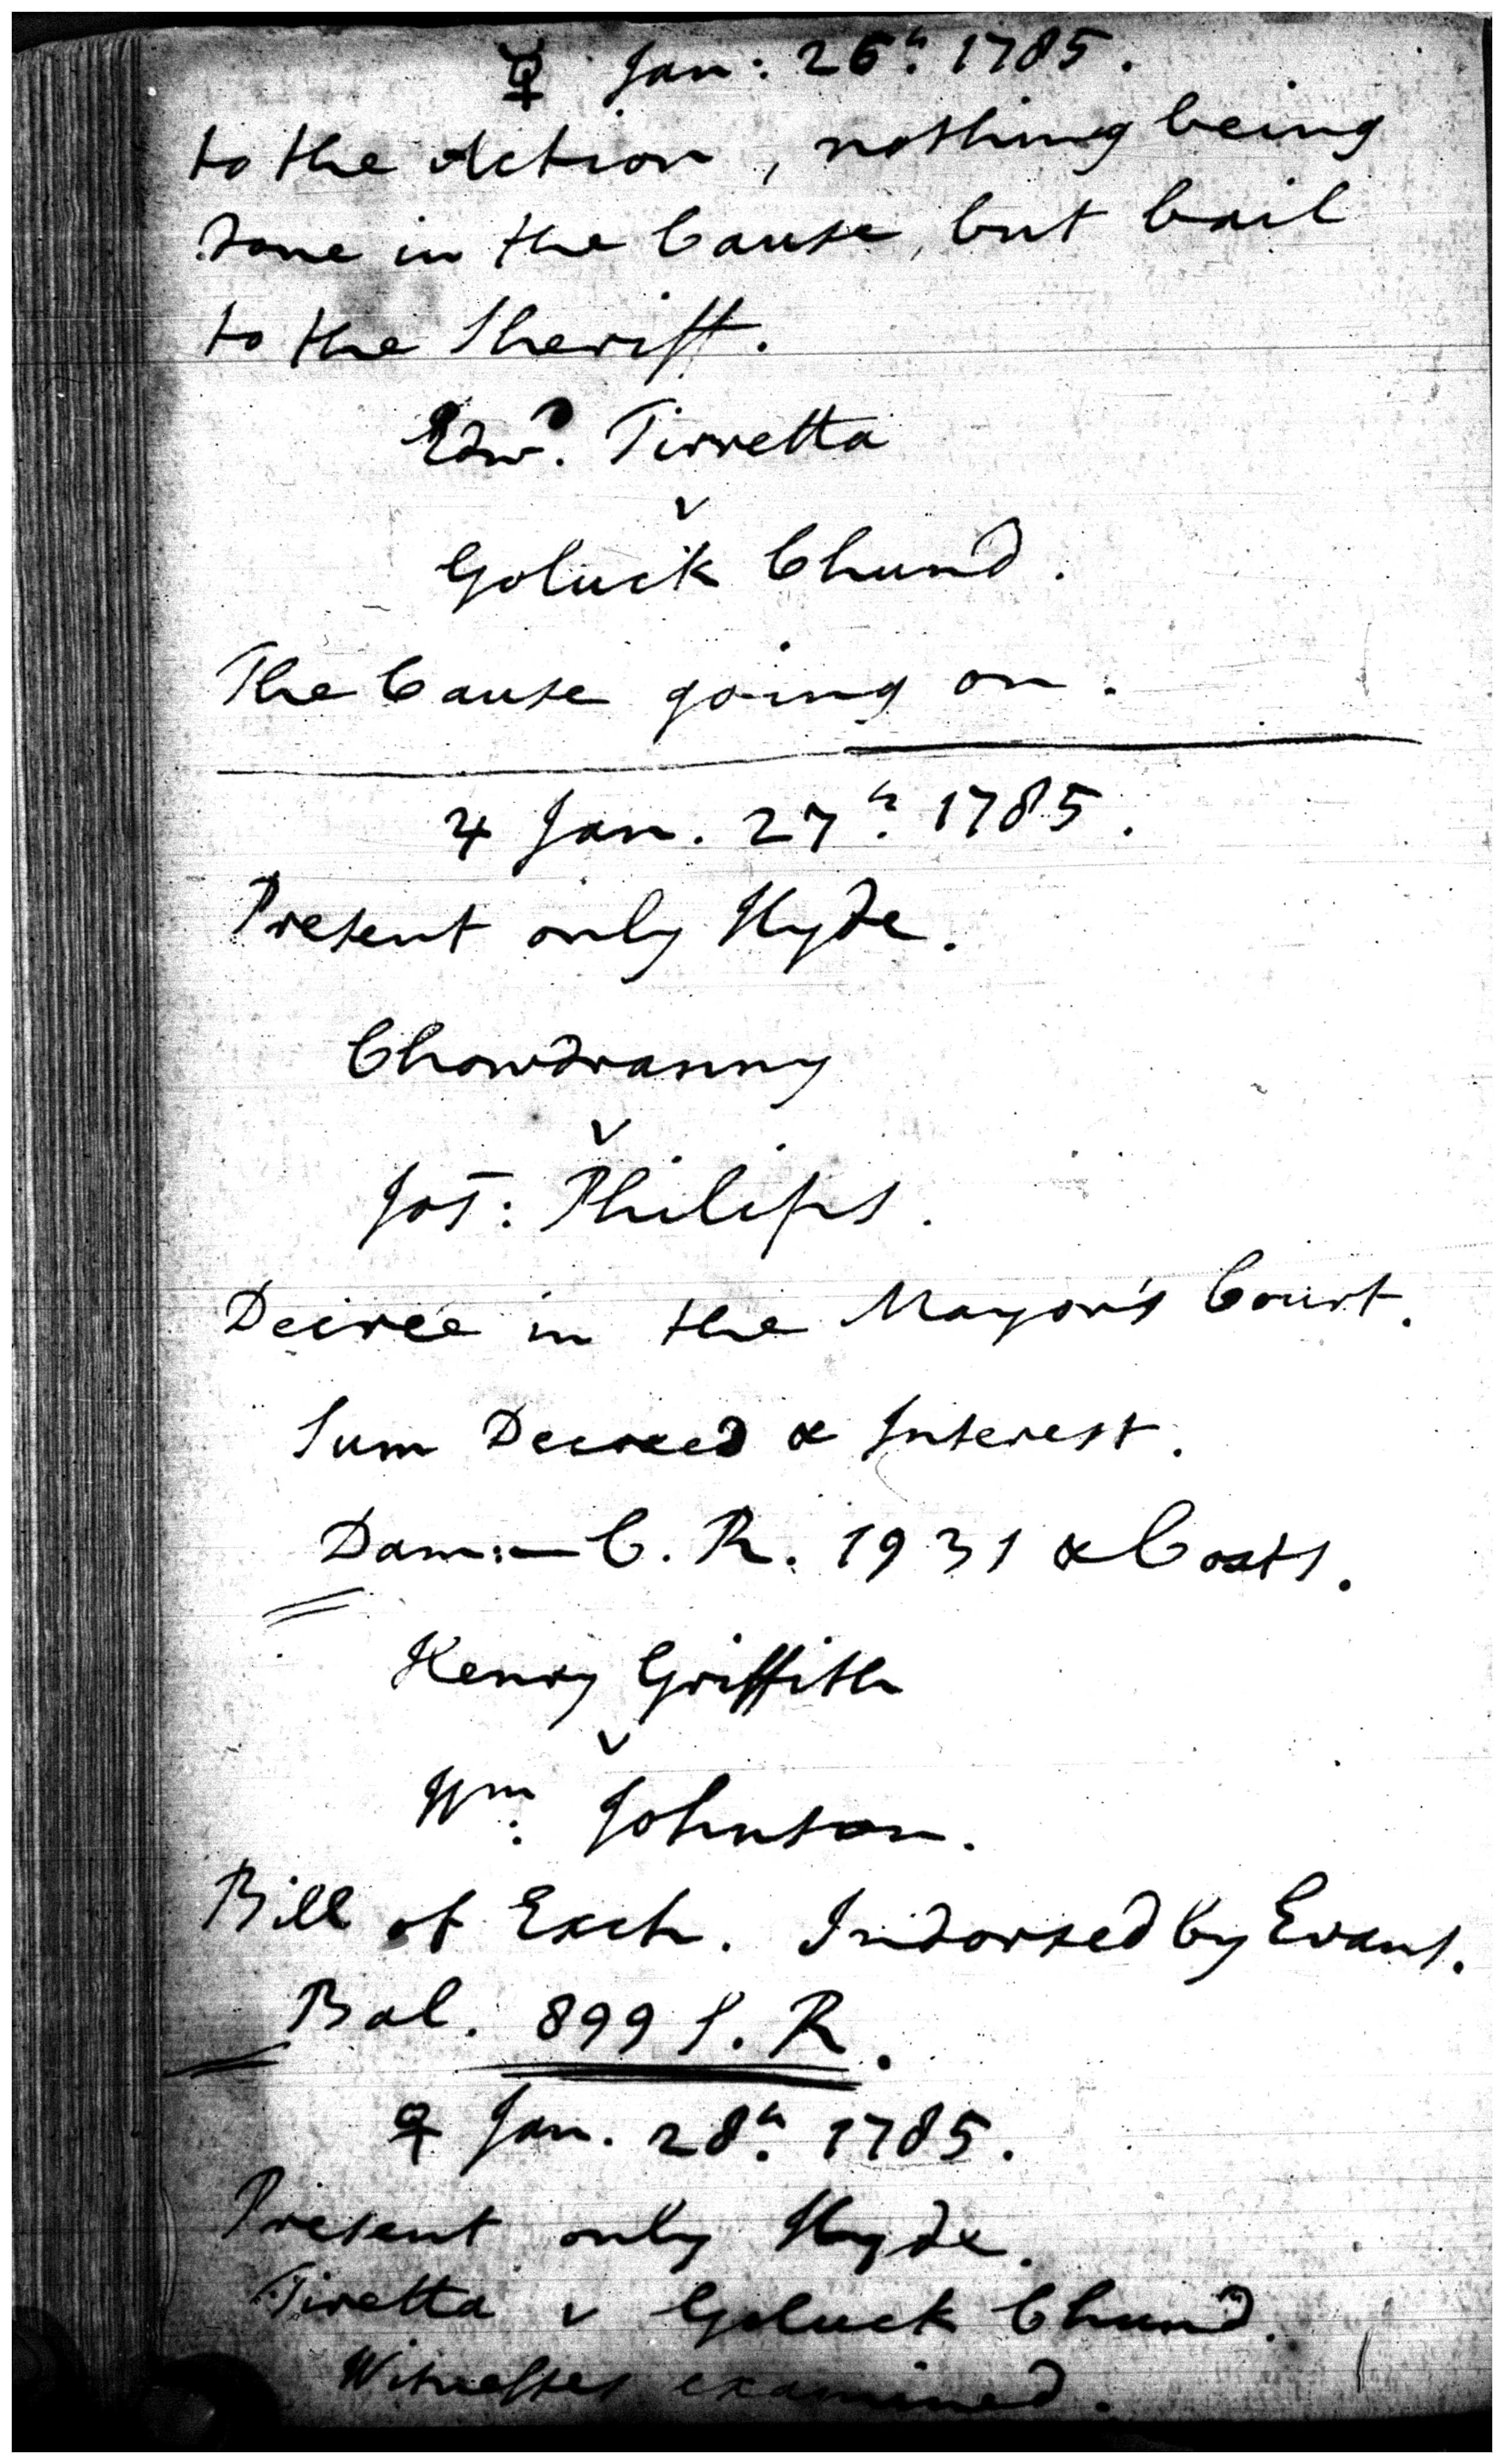 ☿ Jan: 26.ʰ 1785.
to the Action, nothing being
done in the Cause, but bail
to the Sheriff.
Edwᵈ. Tirretta
v
Goluck Chund.
The Cause going on.
♃ Jan. 27.ʰ 1785.
Present only Hyde.
Chowdranny
v
Jos: Philips.
Decree in the Mayor's Court.
Sum Decreed & Interest.
Dam:— C. R. 1931 & Costs.
Henry Griffith
v
Wm. Johnson.
Bill of Exch. Indorsed by Evans.
Bal. 899 S. R.
♀ Jan. 28.ʰ 1785.
Present only Hyde.
Tiretta v Goluck Chund.
Witnesses examined.